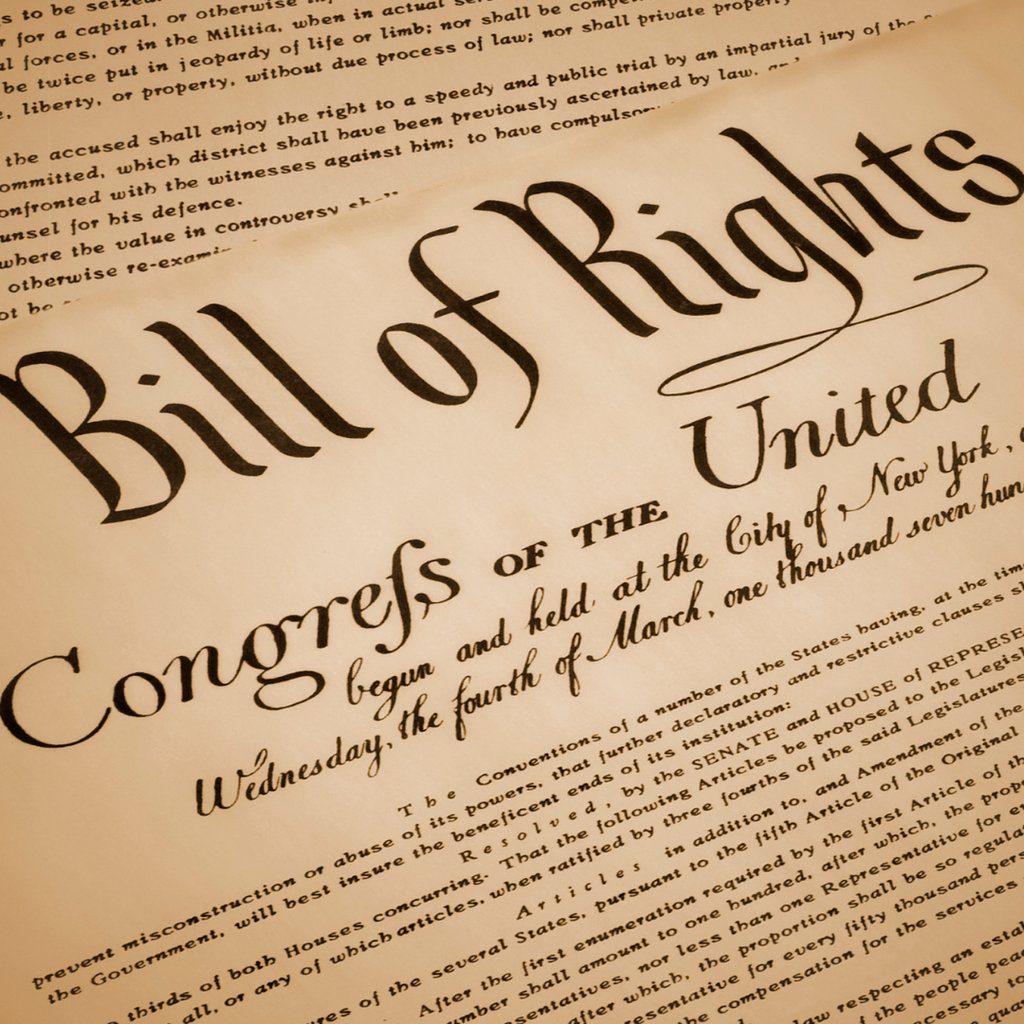 to be seized.
for a capital, or otherwise
forces, or in the Militia, when in actual
be twice put in jeopardy of life or limb; nor shall be
liberty, or property, without due process of law; nor shall private property
the accused shall enjoy the right to a speedy and public trial by an impartial jury of the
committed, which district shall have been previously ascertained by law,
confronted with the witnesses against him; to have
for his defence.
where the value in controversy
otherwise
be
Bill of Rights
Congreſs OF THE United
begun and held at the City of New York,
Wednesday, the fourth of March, one thousand seven
The Conventions of a number of the States having, at the
prevent misconstruction or abuse of its powers, that further declaratory and restrictive clauses
the Government, will best insure the beneficent ends of its institution:
Resolved, by the SENATE and HOUSE of
thirds of both Houses concurring. That the following Articles be proposed to the
all, or any of which articles, when ratified by three fourths of the said Legislatures
Articles in addition to, and Amendment of the
of the several States, pursuant to the fifth Article of the Original
After the first enumeration required by the first Article of the
shall amount to one hundred, after which, the
nor less than one Representative for
after which, the proportion shall be so
for every fifty thousand
the compensation for the services
law respecting an
of the people
to